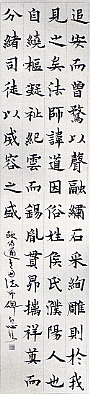 追安而曾騖以聲融繢石采絢雕則於我
見之矣法師諱道因俗姓侯氏濮陽人也
自繞樞凝祉紀雲而錫胤貫昴摛祥奠而
分緒司徒以威容之盛
歐陽通道因法師碑